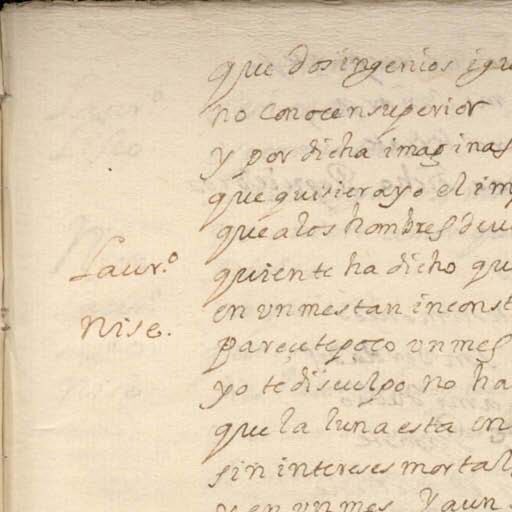 que dos ingenios igu
no conocen superior
y por dicha imaginas
que quisiera yo el imp
que a los hombres deue
Laur.º quien te ha dicho qu
en vn mes tan inconst
Nise. Parecete poco vn mes
yo te disculpo no ha
que la luna esta en
sin intereses mortal
y en vn mes y aun